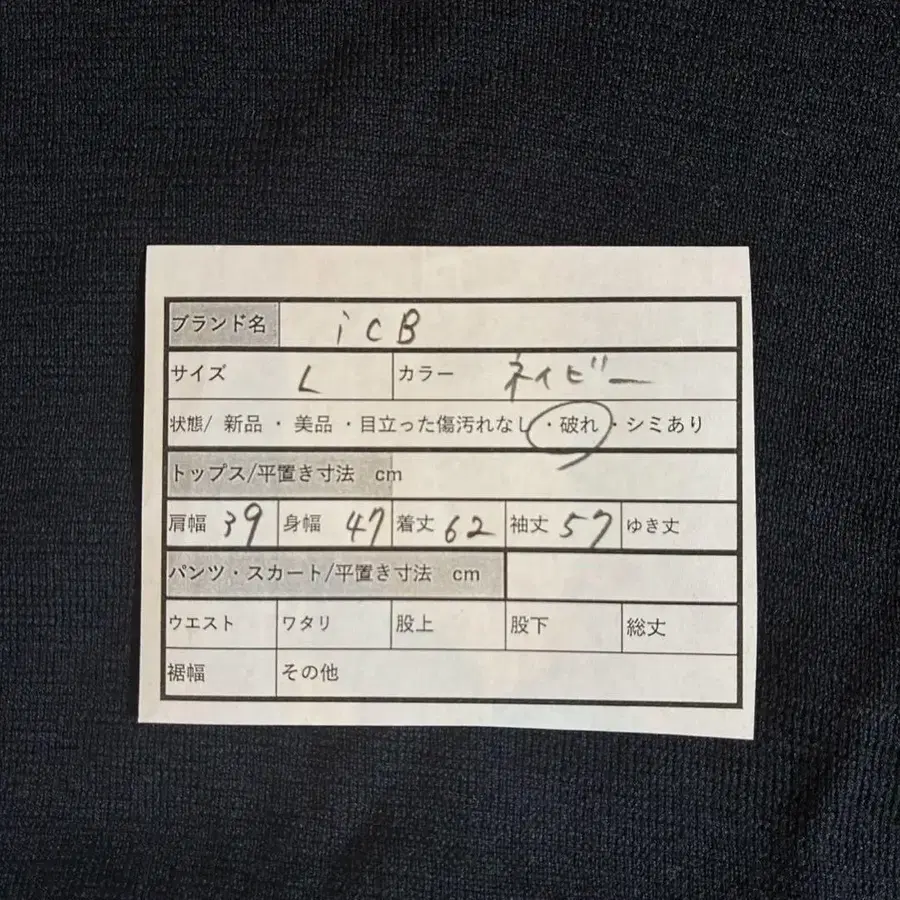 ブランド名 iCB
サイズ L カラー ネイビー
状態/ 新品 ・ 美品 ・目立った傷汚れなし ・破れ ・シミあり
トップス/平置き寸法 cm
肩幅 39 身幅 47 着丈 62 袖丈 57 ゆき丈
パンツ・スカート/平置き寸法 cm
ウエスト ワタリ 股上 股下 総丈
裾幅 その他